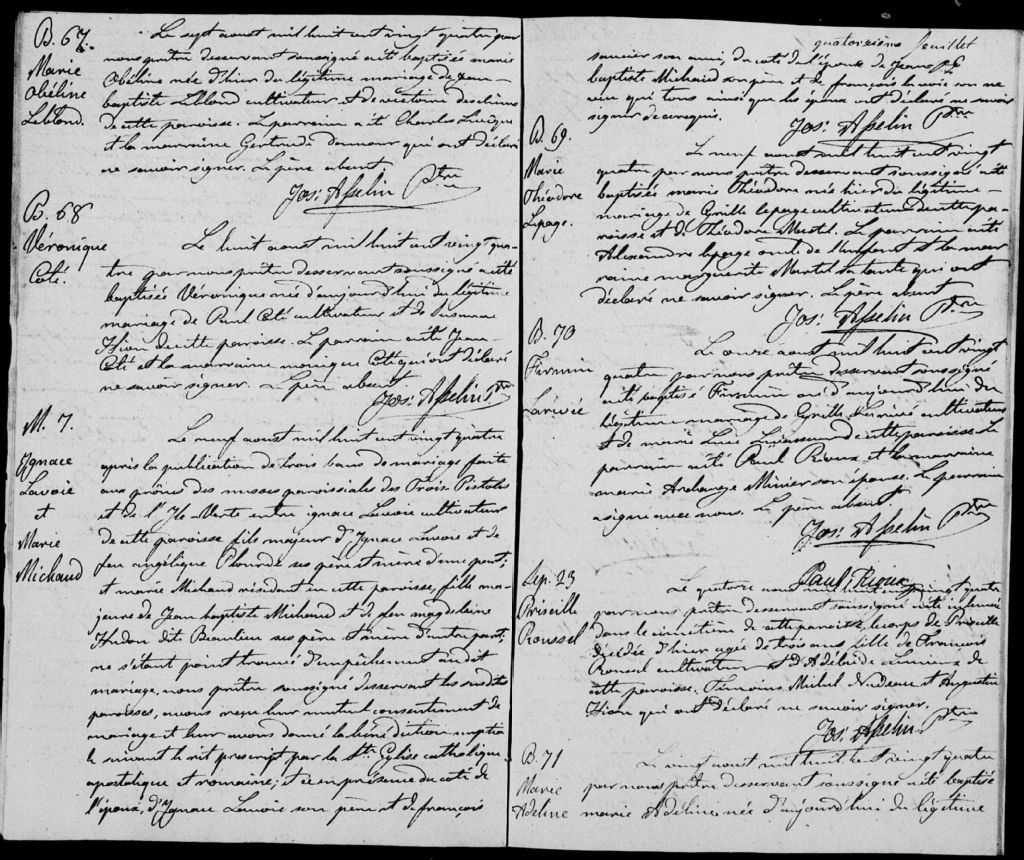 B. 67.
Marie
Obéline
Leblond.
Le sept aoust mil huit cent vingt quatre par
nous prêtre desservant soussigné a été baptisée marie
Obéline née d'hier du légitime mariage de Jean-
baptiste Leblond cultivateur et de victoire
de cette paroisse. Le parrain a été Charles
et la marraine Gertrude qui ont déclaré
ne savoir signer. Le père absent.
Jos: Asselin Ptre
B. 68
Véronique
Coté.
Le huit aoust mil huit cent vingt qua-
tre par nous prêtre desservant soussigné a été
baptisée Véronique née d'aujourd'hui du légitime
mariage de Paul Coté cultivateur et de
de cette paroisse. Le parrain a été Jean
Coté et la marraine monique Coté qui ont déclaré
ne savoir signer. Le père absent.
Jos: Asselin Ptre
M. 7.
Ygnace
Lavoie
et
Marie
Michaud
Le neuf aoust mil huit cent vingt quatre
après la publication de trois bans de mariage faite
aux prônes des messes paroissiales des Trois Pistoles
et de l'Ile-Verte entre ignace Lavoie cultivateur
de cette paroisse fils majeur d'Ygnace Lavoie et de
feu angélique Plourde ses père et mère d'une part;
et marie Michaud résidant en cette paroisse, fille ma-
jeure de Jean baptiste Michaud et de feu magdelaine
Hudon dit Beaulieu ses père et mère d'autre part;
ne s'étant point trouvé d'empêchement audit
mariage, nous prêtre soussigné desservant les susdites
paroisses, avons reçu leur mutuel consentement de
mariage et leur avons donné la bénédiction nuptia
le suivant le rit prescrit par la Ste. Eglise catholique
apostolique et romaine; et ce en présence du coté de
l'époux, d'Ygnace Lavoie son père et de françois
quatorzième feuillet
son ami; du coté de l'épouse de Jean
baptiste Michaud son père et de françois lavoie son ne
veu qui tous ainsi que les époux ont déclaré ne savoir
signer de ce requis.
Jos: Asselin Ptre
B. 69.
Marie
Théodore
Lepage.
Le neuf aoust mil huit cent vingt
quatre par nous prêtre desservant soussigné a été
baptisée marie Théodore née hier du légitime
mariage de Cyrille lepage cultivateur de cette pa-
roisse et de Théodore Martel. Le parrain a été
Alexandre lepage oncle de l'enfant et la mar
raine marguerite Martel sa tante qui ont
déclaré ne savoir signer. Le père absent
Jos: Asselin Ptre
B. 70
Firmin
Larivée
Le onze aoust mil huit cent vingt
quatre par nous prêtre desservant soussigné
a été baptisé Firmin né d'aujourd'hui du
légitime mariage de Cyrille Larivée cultivateur
et de marie de cette paroisse. Le
parrain a été Paul Rioux et la marraine
marie Archange son épouse. Le parrain
a signé avec nous. Le père absent.
Jos: Asselin Ptre
Paul Rioux
Sep. 23
Priseille
Roussel
Le quatorze aoust mil huit cent vingt quatre
par nous prêtre desservant soussigné a été inhumé
dans le cimetière de cette paroisse le corps de Priseille
décédée d'hier agée de trois ans fille de François
Roussel cultivateur et d'Adélaïde Lemieux de
cette paroisse. Témoins Michel Nadeau et Augustin
qui ont déclaré ne savoir signer.
Jos: Asselin Ptre
B. 71
Marie
Adeline
Le vingt aoust mil huit cent vingt quatre
par nous prêtre desservant soussigné a été baptisé
marie Adéline née d'aujourd'hui du légitime